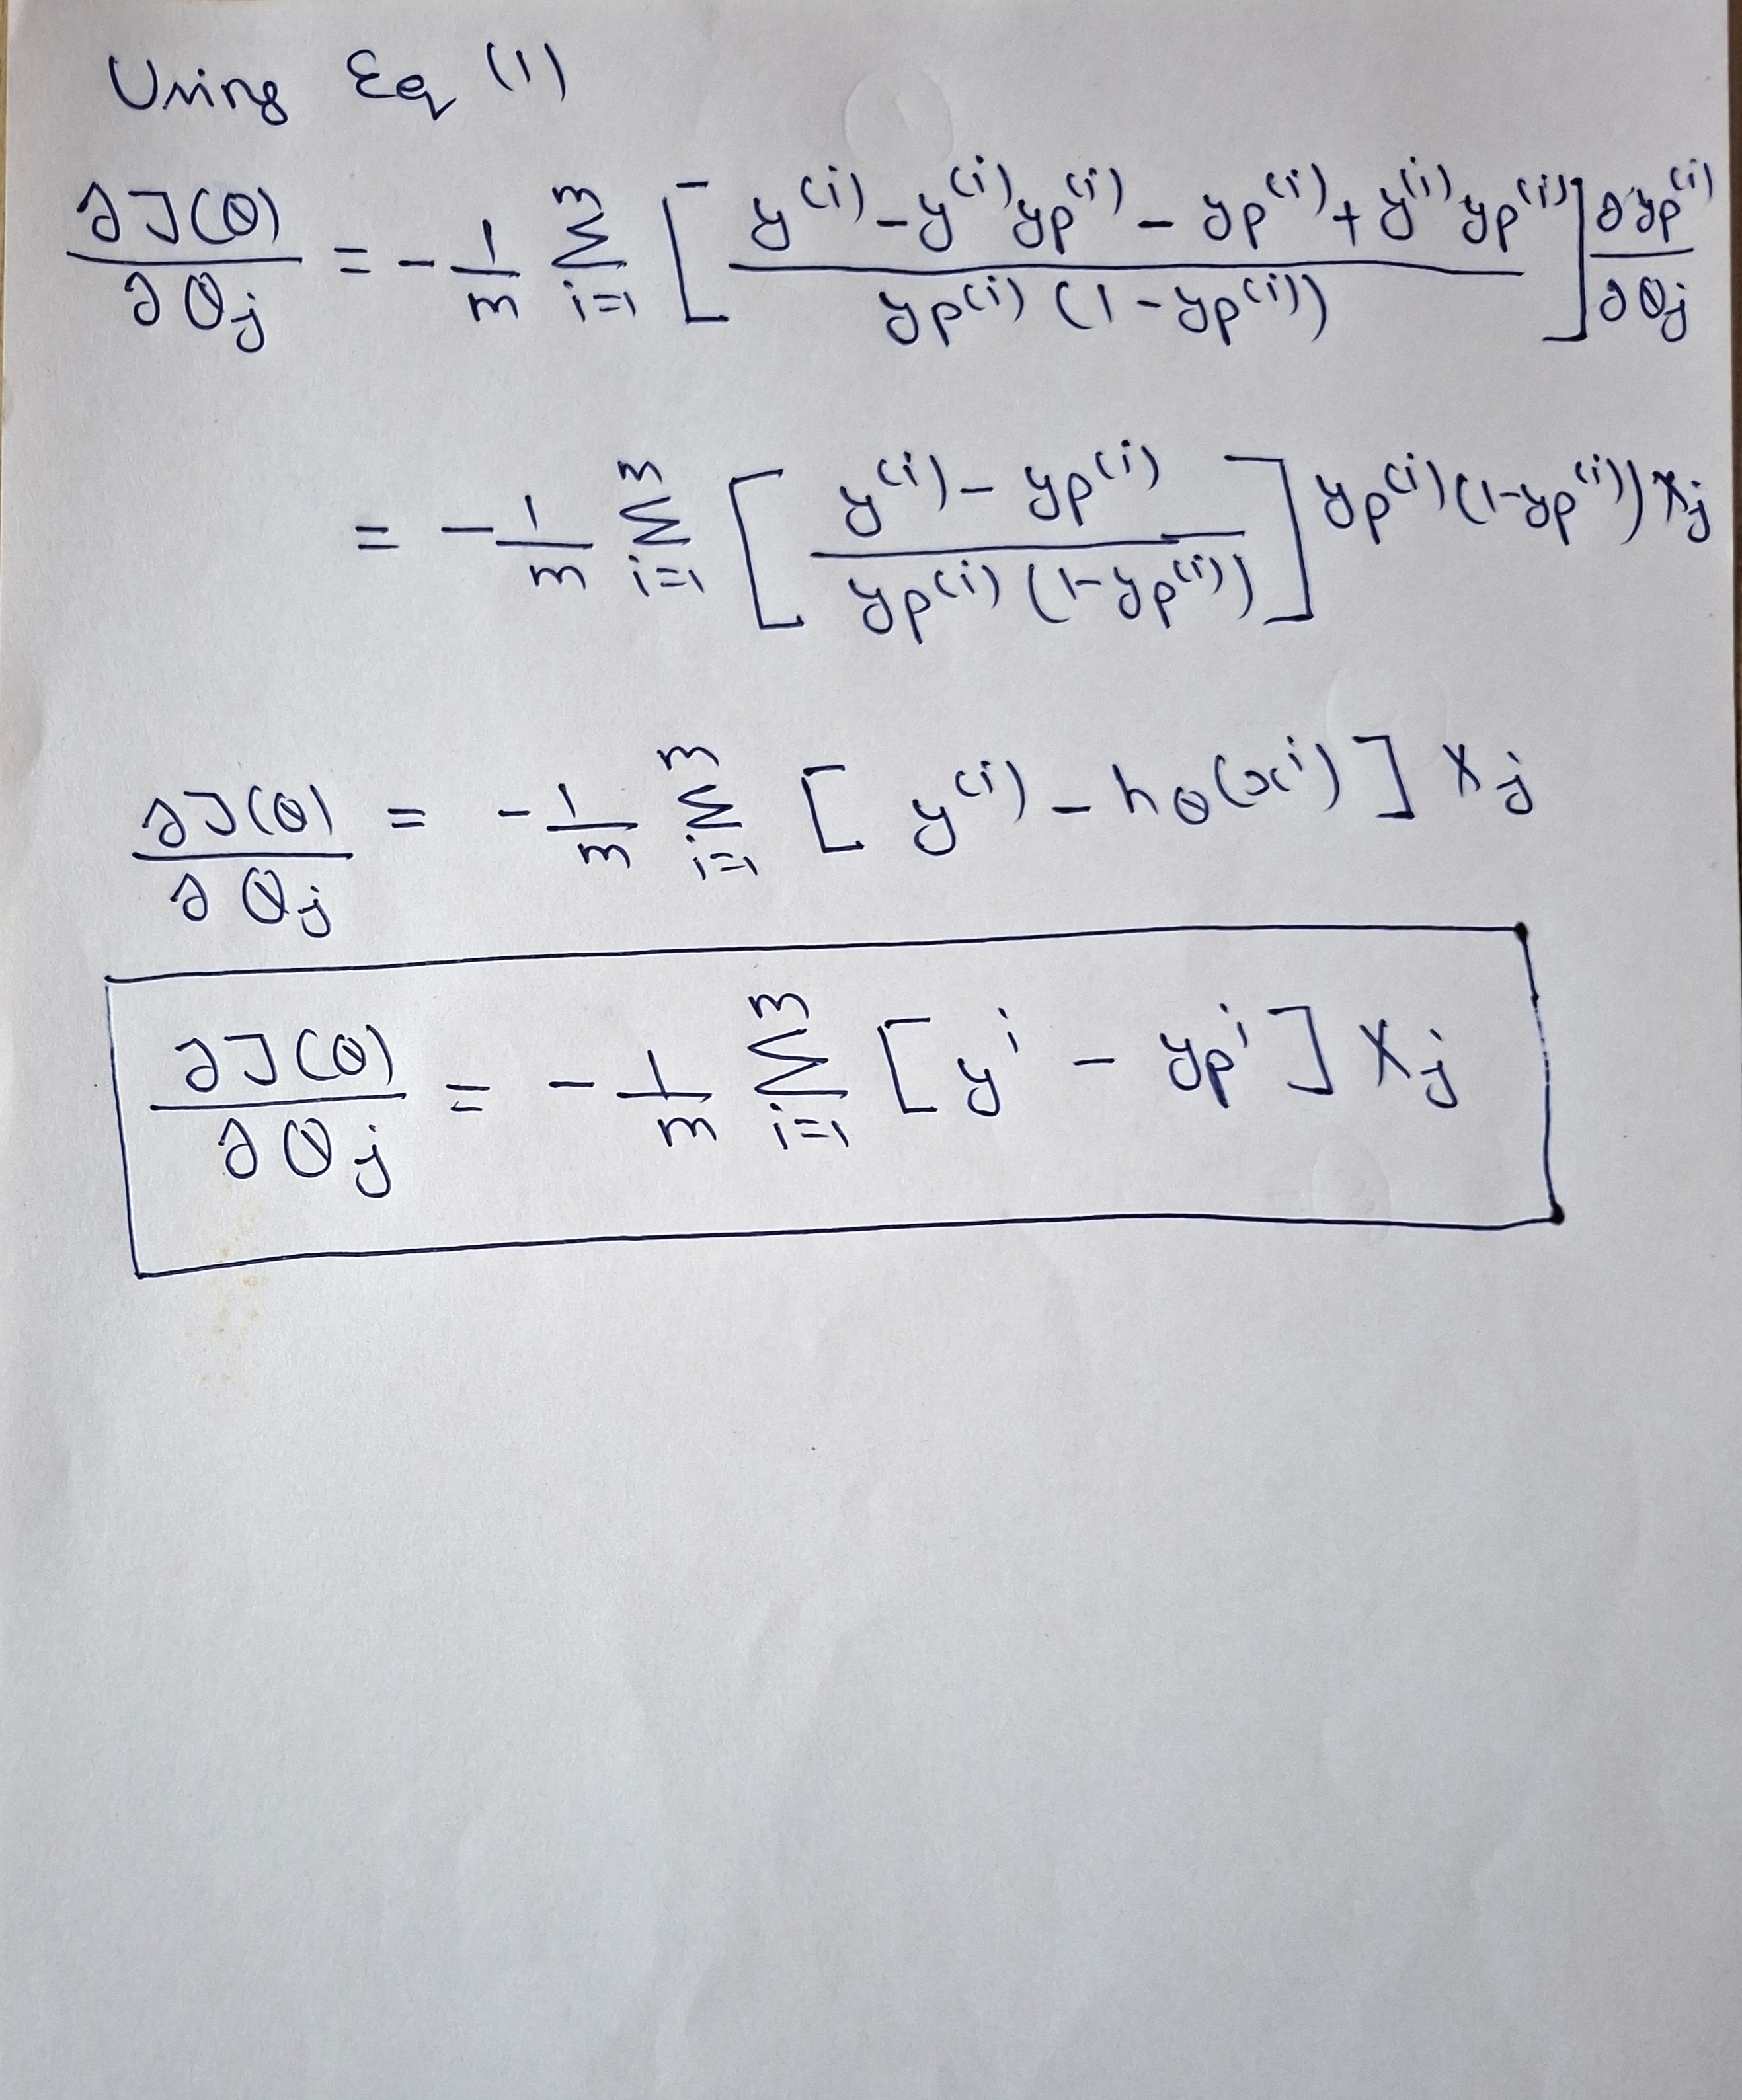 Using Eq (1)
∂J(θ)/∂θj = -1/m Σ_{i=1}^{m} [ (y^(i) - y^(i) yp^(i) - yp^(i) + y^(i) yp^(i)) / (yp^(i) (1 - yp^(i))) ] ∂yp^(i)/∂θj
= -1/m Σ_{i=1}^{m} [ (y^(i) - yp^(i)) / (yp^(i) (1-yp^(i))) ] yp^(i) (1-yp^(i)) xj
∂J(θ)/∂θj = -1/m Σ_{i=1}^{m} [ y^(i) - hθ(x^i) ] xj
∂J(θ)/∂θj = -1/m Σ_{i=1}^{m} [ y^i - yp^i ] xj